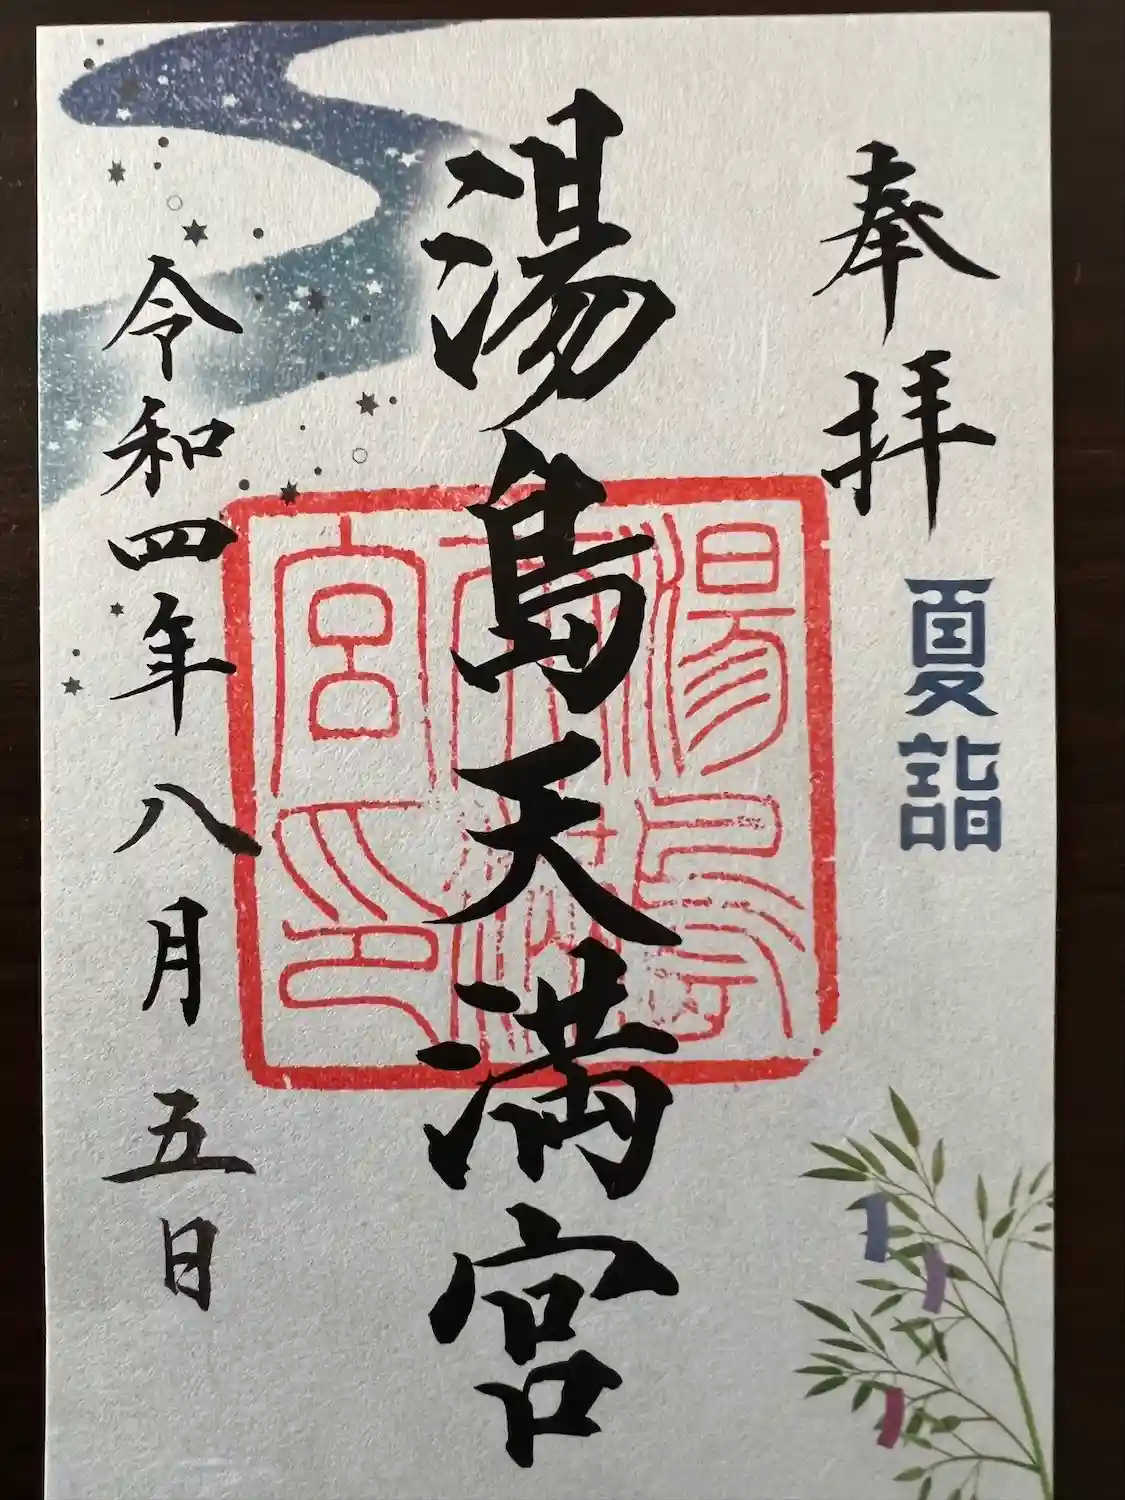 奉拝
夏詣
湯島天満宮
湯島天満宮印
令和四年八月五日